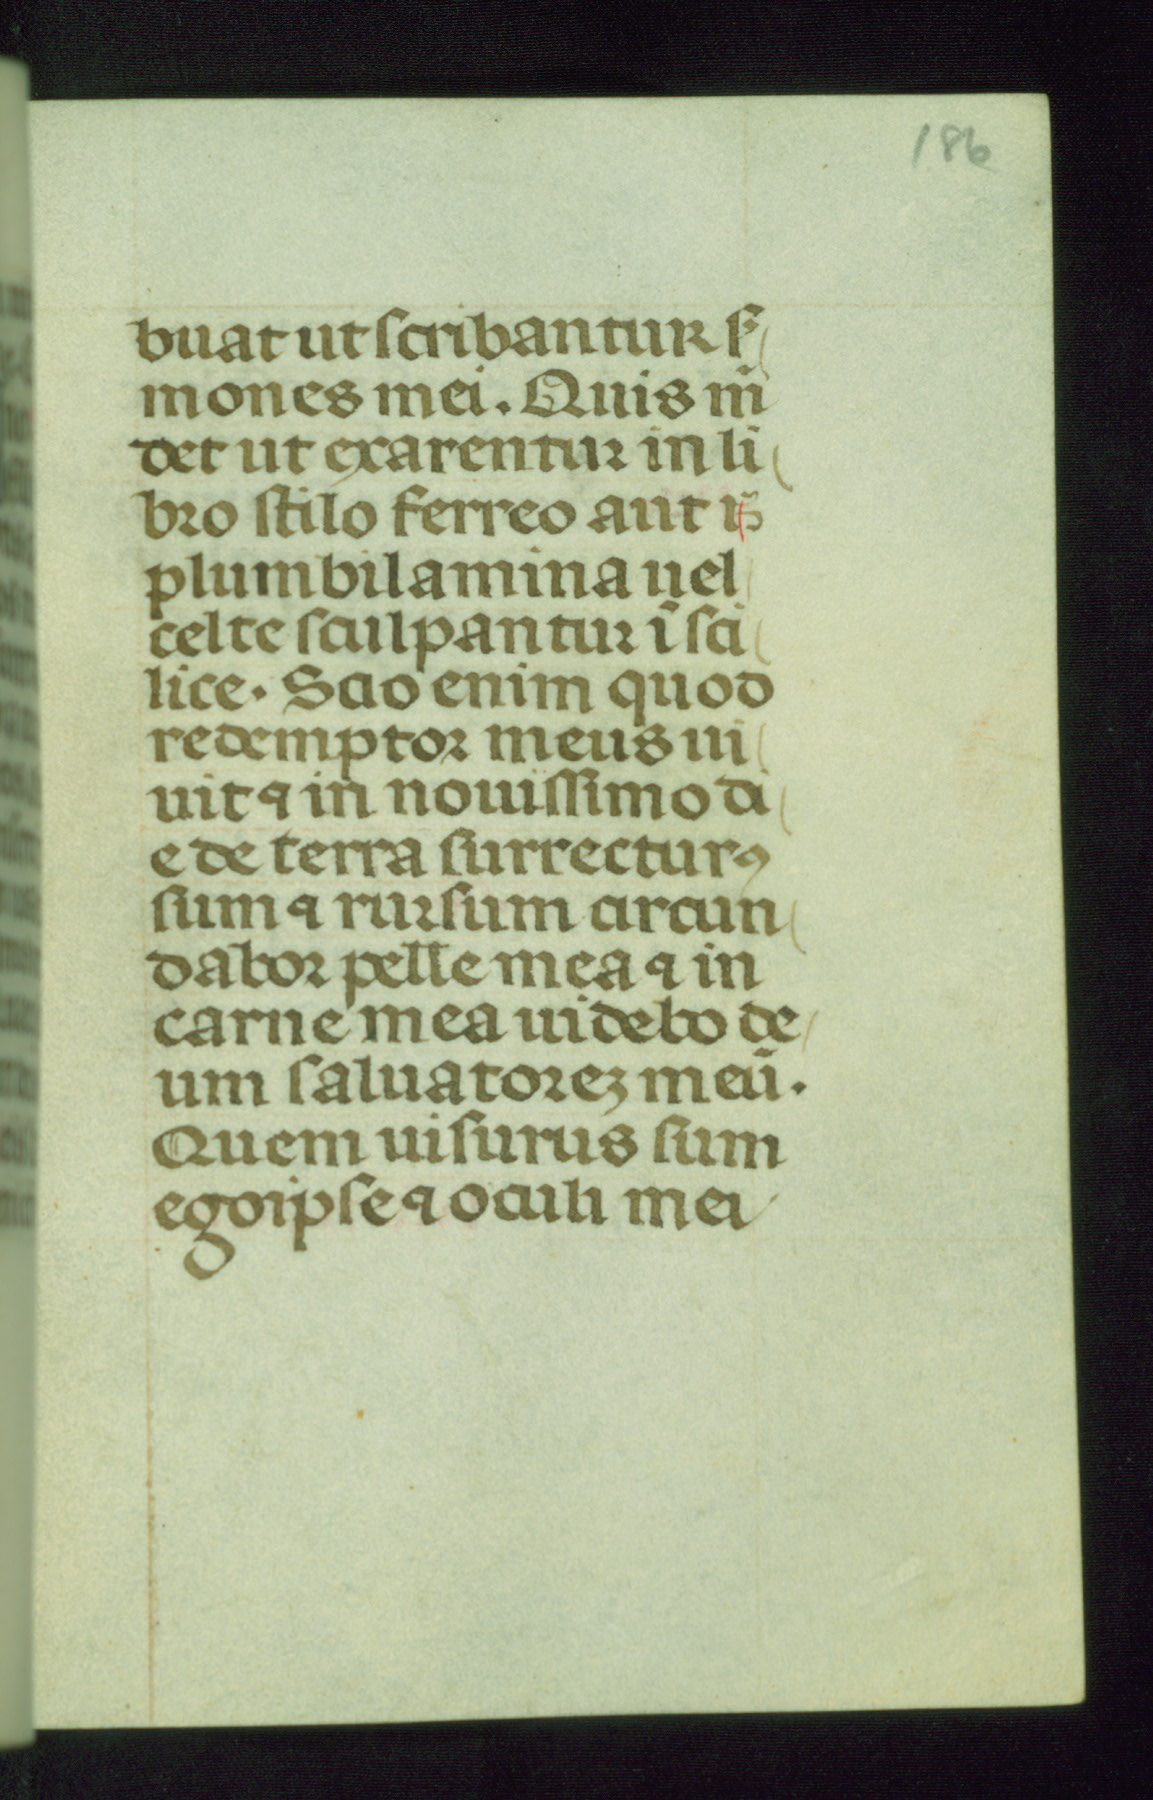 186
buat ut scribantur s̄
mones mei. Quis m̄
det ut exarentur in li
bro stilo ferreo aut
plumbi lamina uel
celte sculpantur ī sci
lice. Scio enim quod
redemptor meus ui
uit ꝯ in nouissimo di
e de terra surrecturꝰ
sum ꝯ rursum circun
dabor pelle mea ꝯ in
carne mea uidebo de
um saluatoreꝫ meū.
Quem uisurus sum
ego ipse ꝯ oculi mei